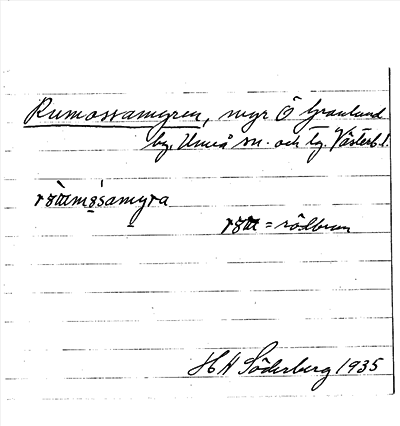 Rumossamyren, myr Ö Granlund
by, Umeå sn. och tg. Västerb. l.
römmo̱samy̱ra
röm = rödbrun
H H Söderberg 1935